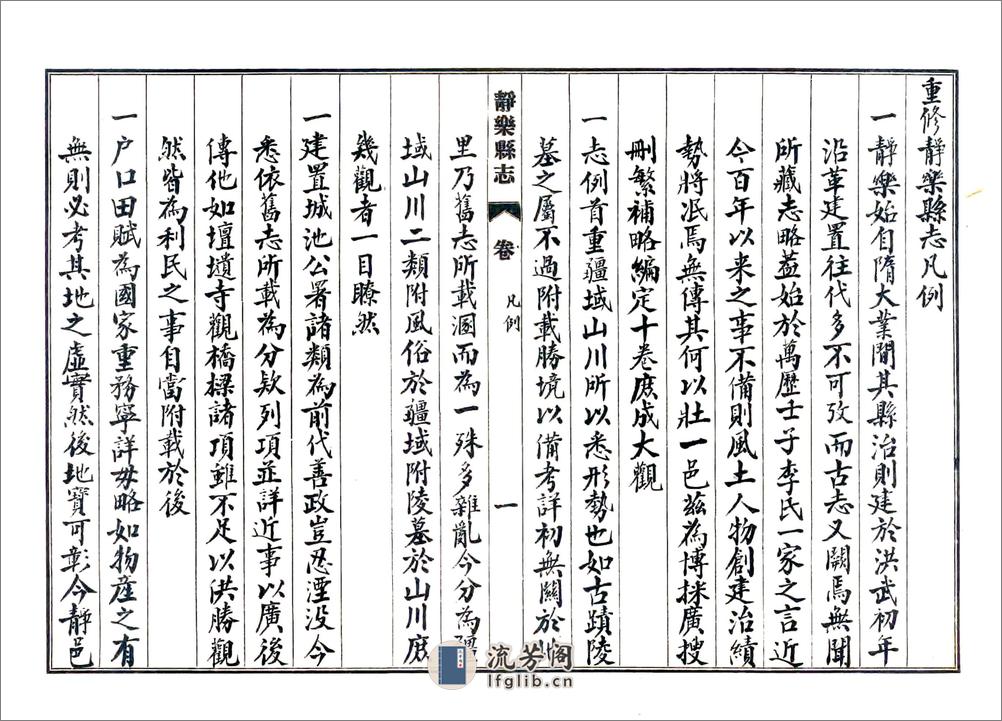 重修靜樂縣志凡例
一靜樂始自隋大業間其縣治則建於洪武初年
沿革建置往代多不可攷而古志又闕焉無聞
所藏志略葢始於萬歷士子李氏一家之言近
今百年以來之事不備則風土人物創建治績
勢將泯焉無傳其何以壯一邑茲為博採廣搜
刪繁補略編定十卷庶成大觀
一志例首重疆域山川所以悉形勢也如古蹟陵
墓之屬不過附載勝境以備考詳初無關於
靜樂縣志
卷
凡例
一
里乃舊志所載溷而為一殊多雜亂今分為疆
域山川二類附風俗於疆域附陵墓於山川庶
幾觀者一目瞭然
一建置城池公署諸類為前代善政豈忍湮没今
悉依舊志所載為分欵列項並詳近事以廣後
傳他如壇壝寺觀橋樑諸項雖不足以供勝觀
然皆為利民之事自當附載於後
一户口田賦為國家重務寧詳毋略如物産之有
無則必考其地之虛實然後地寶可彰今靜邑
流芳阁
lfglib.cn